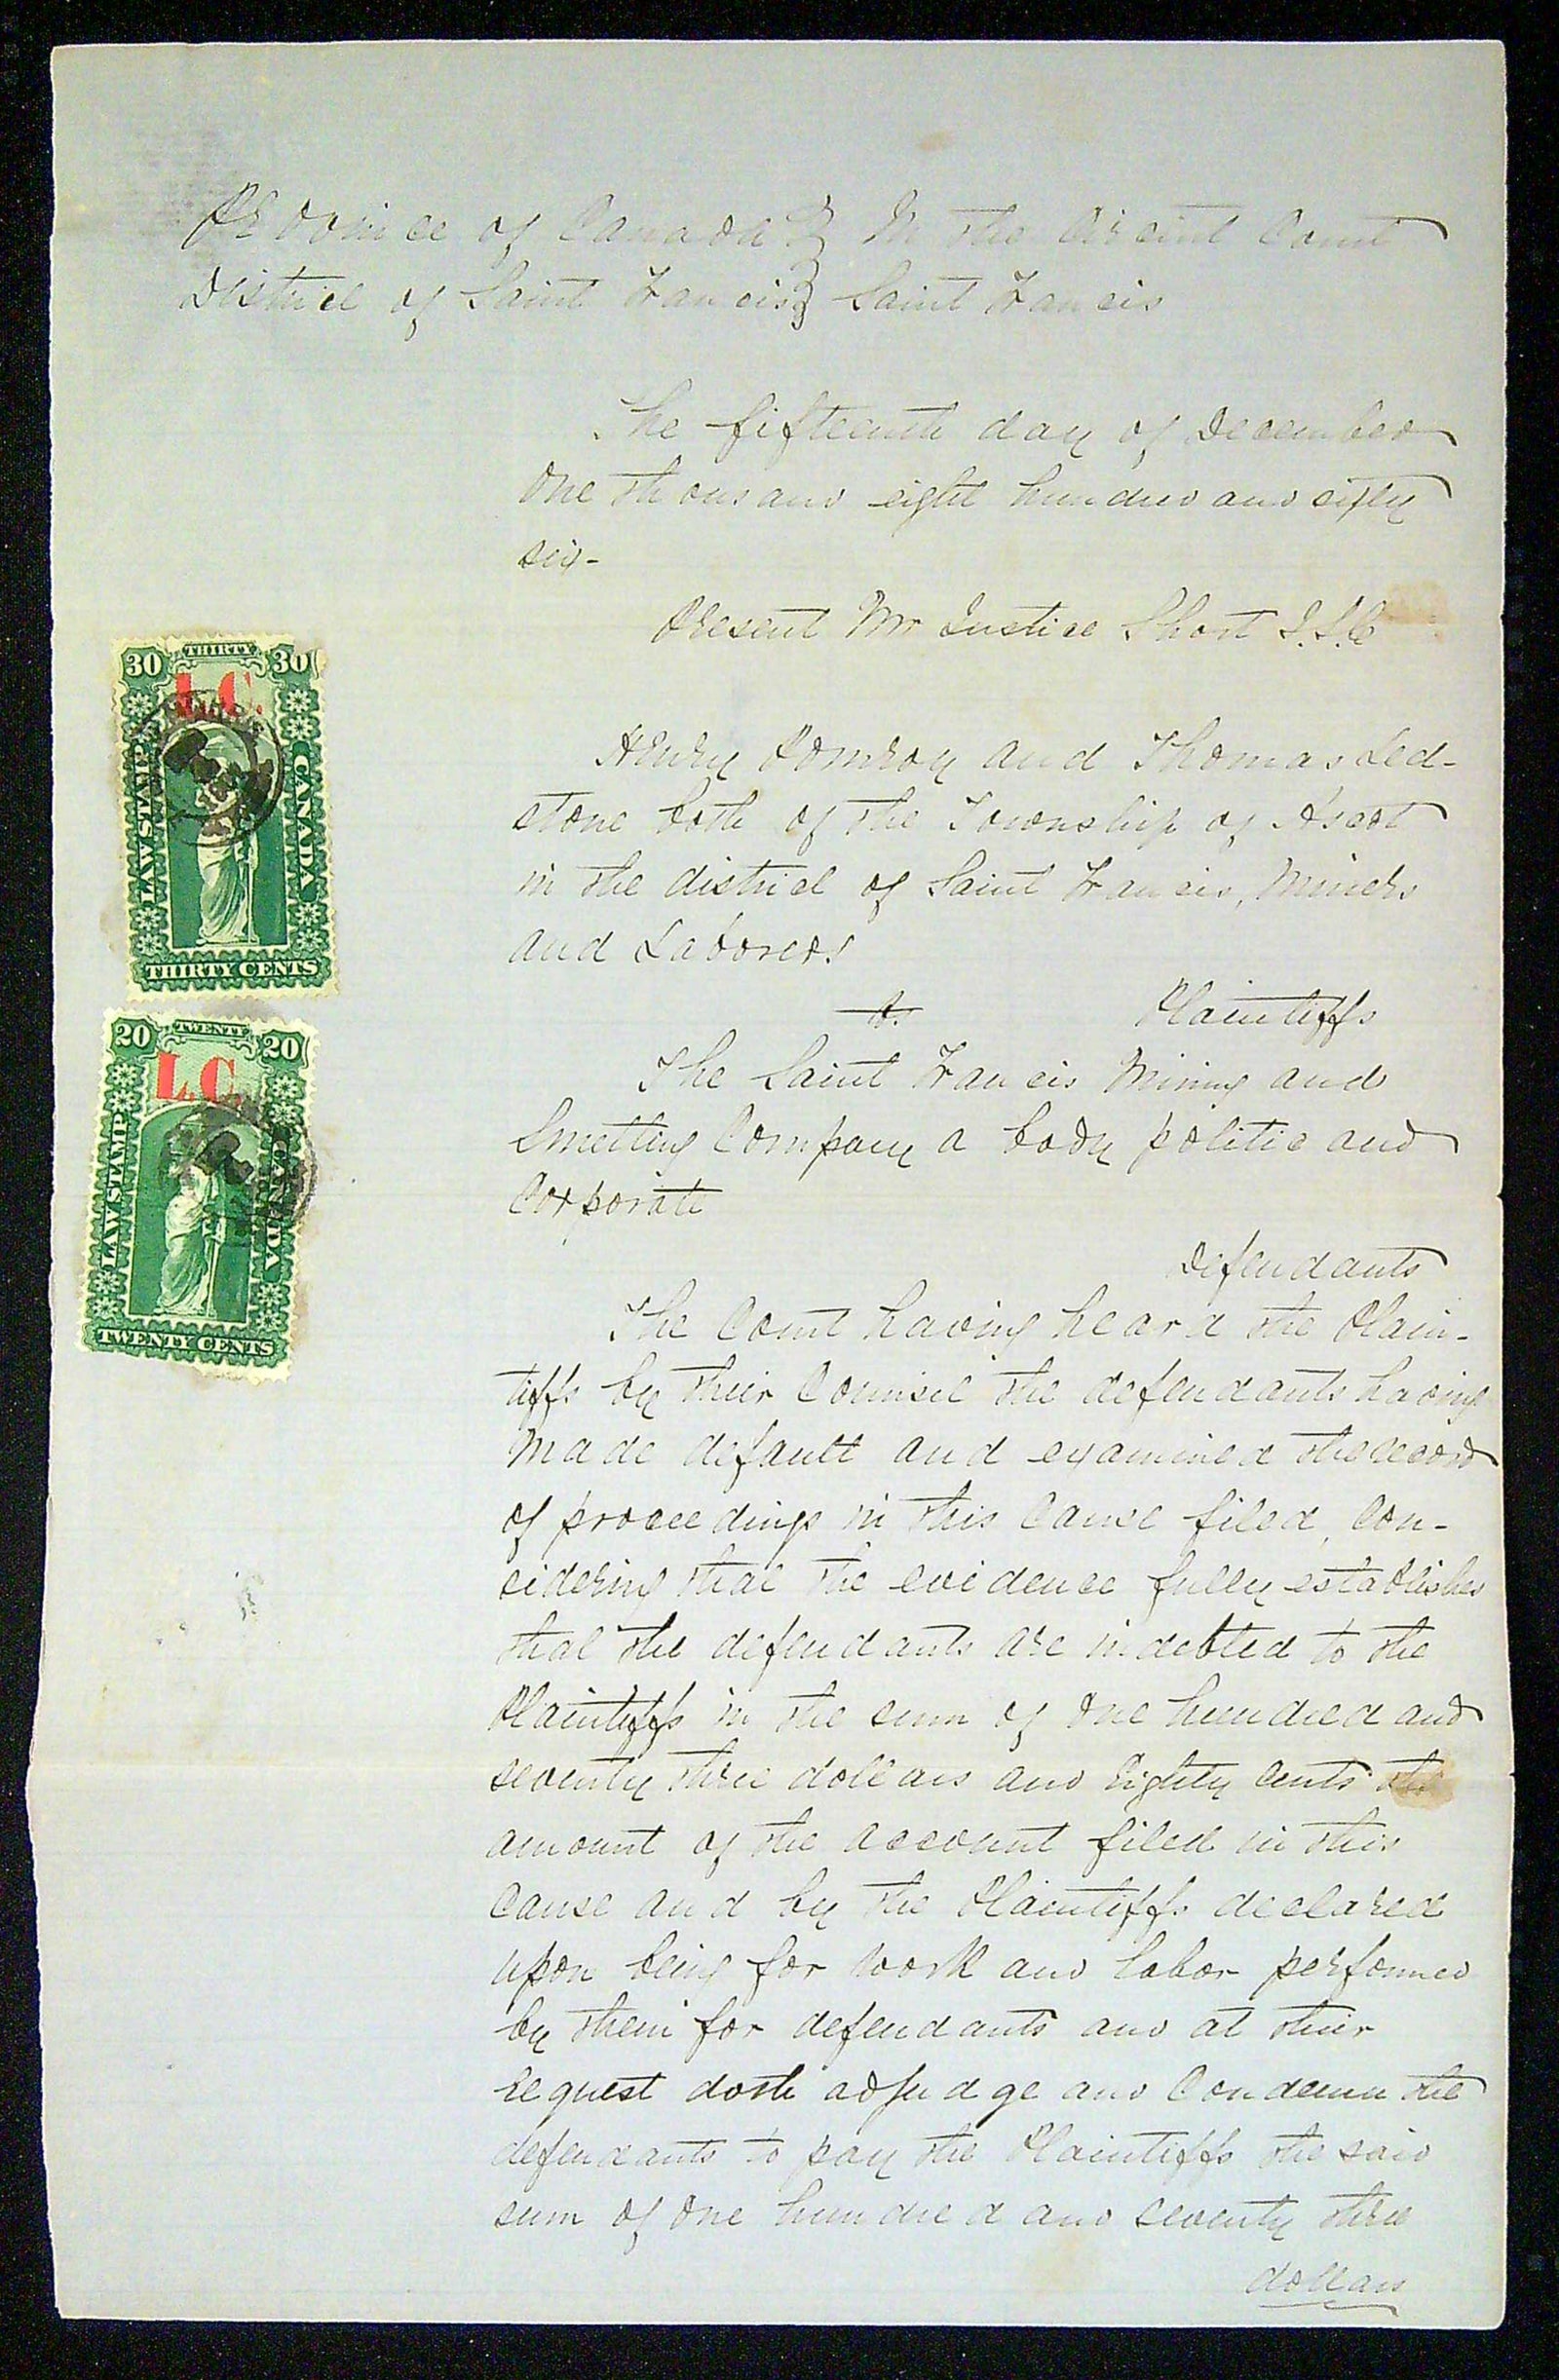 Province of Canada } In the Circuit Court
District of Saint Francis } Saint Francis
The fifteenth day of December
One thousand eight hundred and sixty
six-
Present Mr Justice Short J.S.C
Henry Pomroy and Thomas Led-
stone both of the Township of Ascot
in the district of Saint Francis, Miners
and Laborers
Plaintiffs
The Saint Francis Mining and
Smelting Company a body politic and
Corporate
Defendants
The Court having heard the Plain-
tiffs by their Counsel the defendants having
made default and examined the record
of proceedings in this Cause filed, Con-
sidering that the evidence fully establishes
that the defendants are indebted to the
Plaintiffs in the sum of One hundred and
seventy three dollars and Eighty Cents the
amount of the account filed in this
Cause and by the Plaintiffs declared
upon being for work and labor performed
by them for defendants and at their
request doth adjudge and Condemn the
defendants to pay the Plaintiffs the said
sum of One hundred and seventy three
dollars
30 THIRTY 30
L.C.
LAW STAMP
CANADA
THIRTY CENTS
20 TWENTY 20
L.C.
LAW STAMP
CANADA
TWENTY CENTS